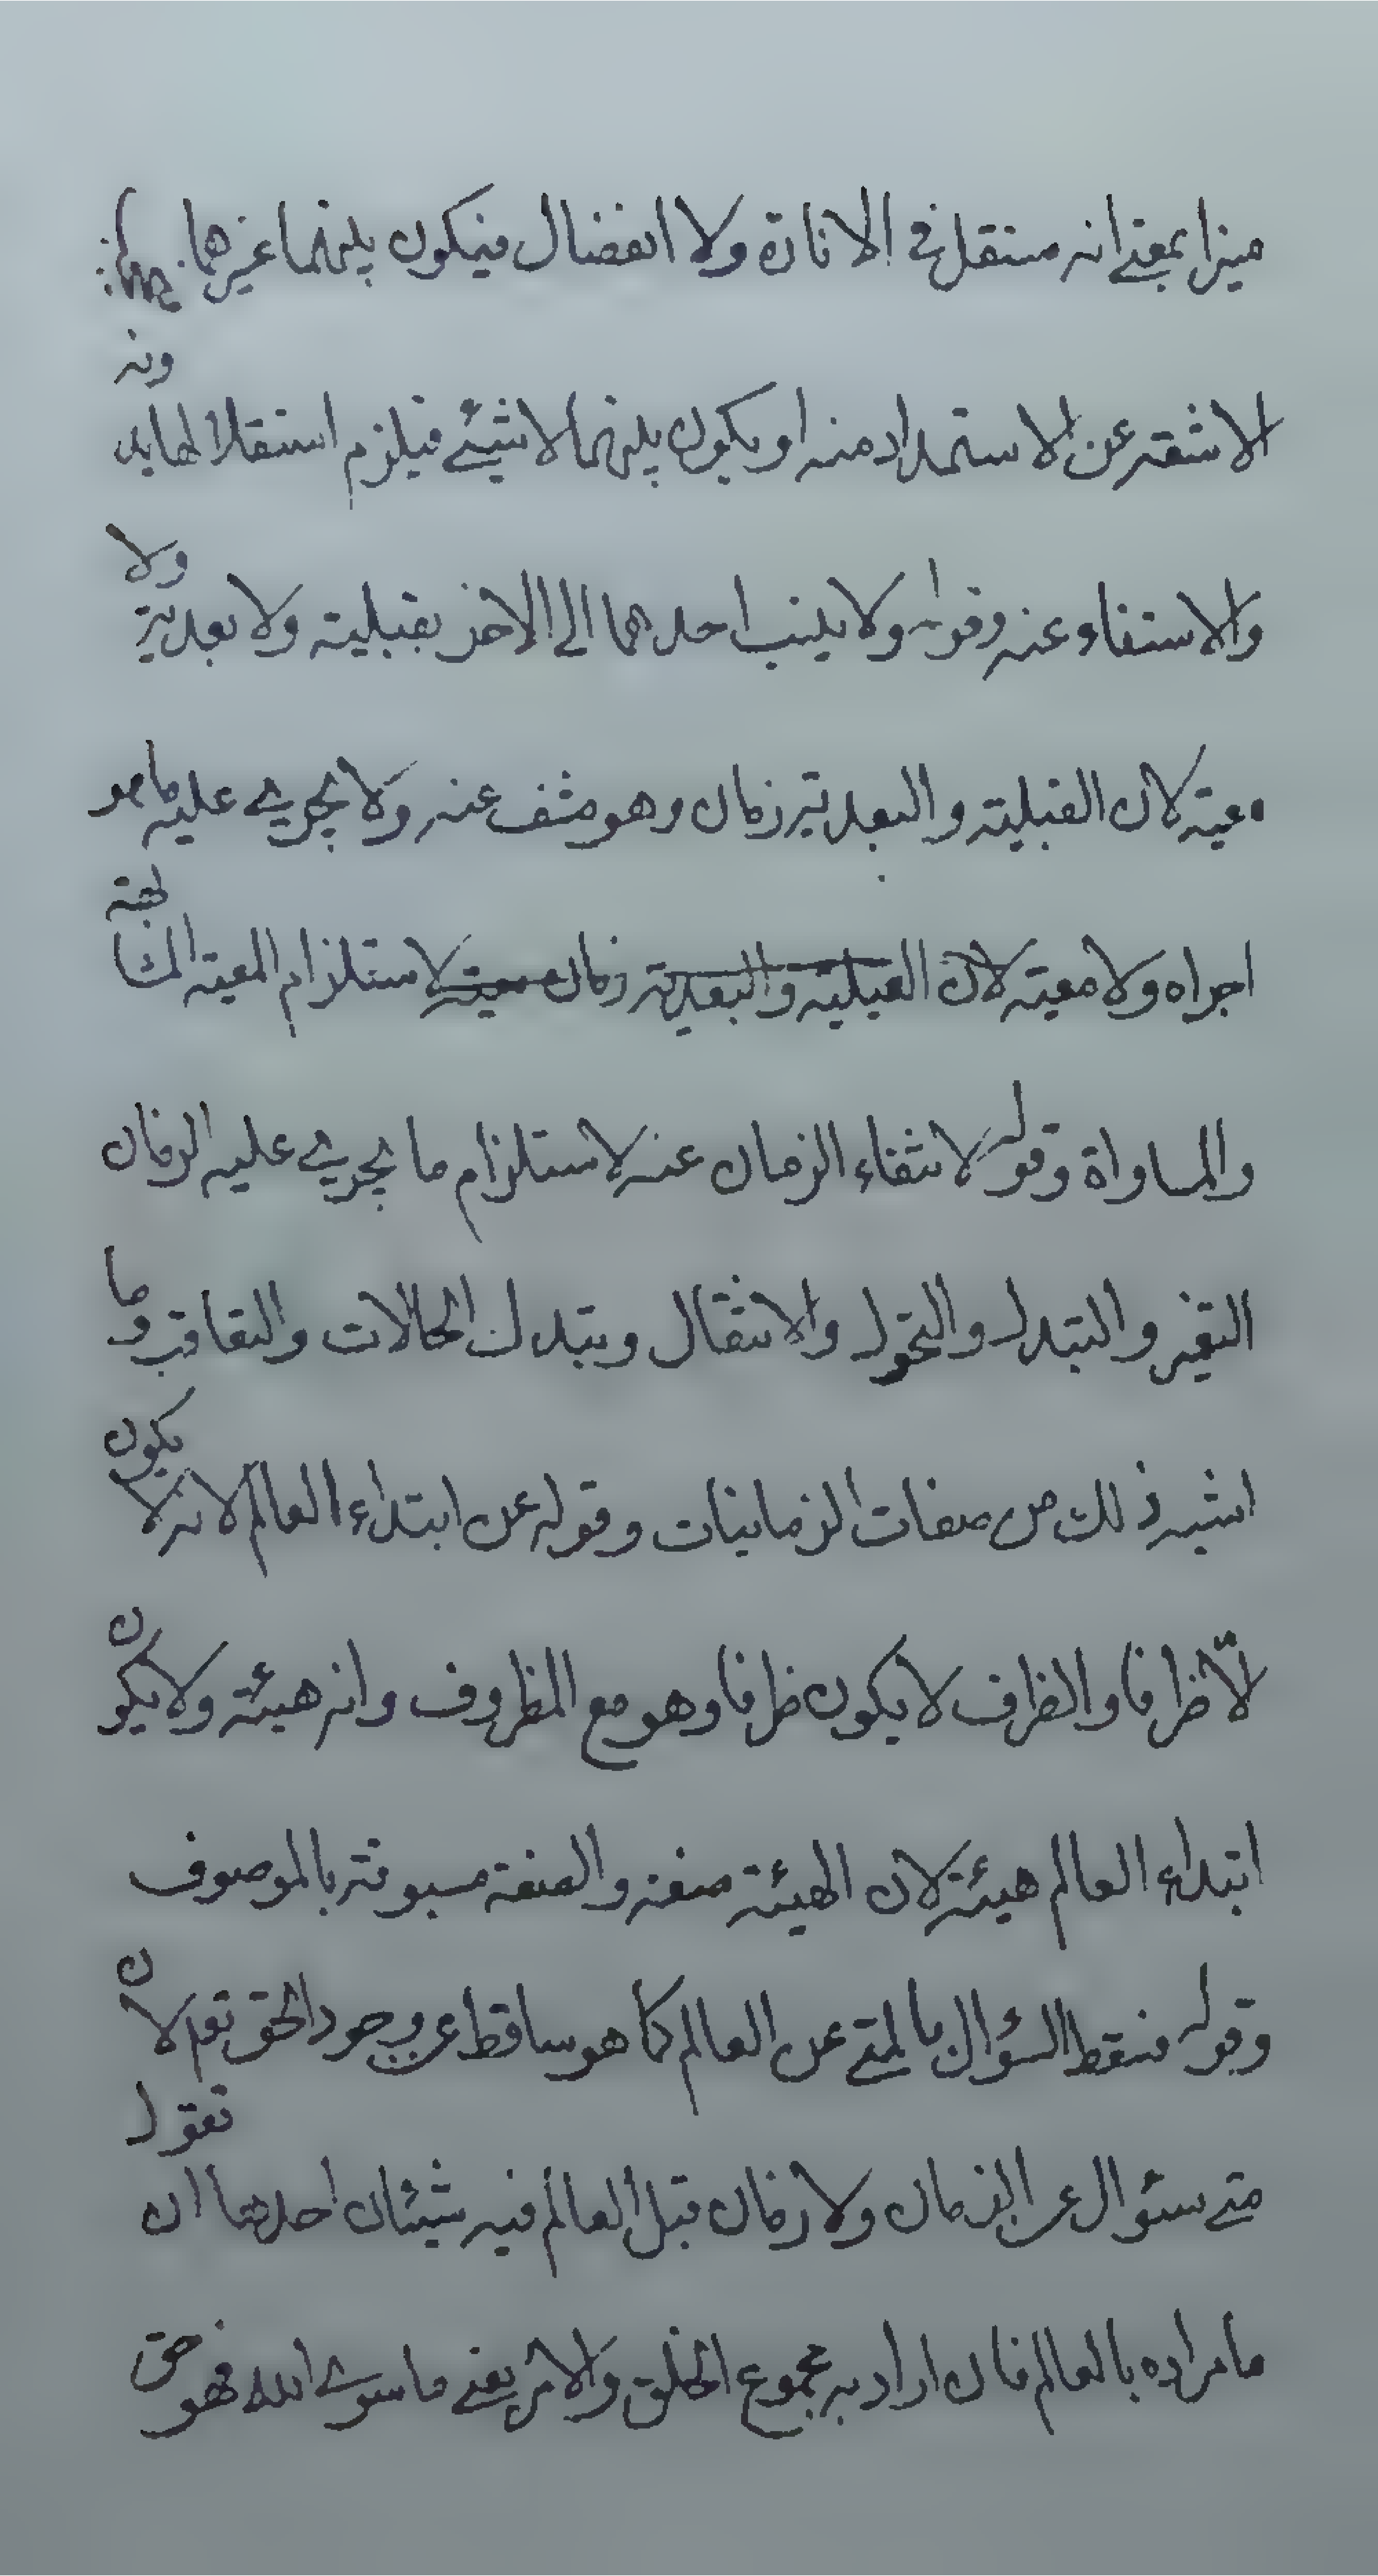 ميزا بمعنے انه مستقل في الانارة ولا انفصال فيكون بينهما غيرهما
الاشقه عن الاستمداد منه او يكون بينهما لا شيئے فيلزم استقلالها بدونه
والاستفاء عنه وقوله ولا ينسب احدهما الے الاخر بقبلية ولا بعدية ولا
معية لان القبلية والبعدية زمان وهو منتف عنه ولا يجرے عليه ما هو
اجراه ولا معية لان القبلية والبعدية زمان معية لاستلزام المعية المصاحبة
والمساواة وقوله لانتفاء الزمان عنه لاستلزام ما يجرے عليه الزمان
التغير والتبدل والتحول والانتقال وتبدل الحالات والتعاقب وما
اشبه ذلك من صفات الزمانيات وقوله عن ابتداء العالم لانه لا يكون
الّا ظرفا والظرف لا يكون ظرفا وهو مع المظروف وانه هيئة ولا يكون
ابتداء العالم هيئة لان الهيئة صفة والصفة مسبوقة بالموصوف
وقوله فسقط السؤال بالمتے عن العالم كما هو ساقط عن وجود الحق تعم لان
متے سئوال عن الزمان ولا زمان قبل العالم فيه شيئان احدهما ان نقول
ما مراده بالعالم فان اراد به مجموع الخلق والامر يعنے ما سوے الله فهو حق